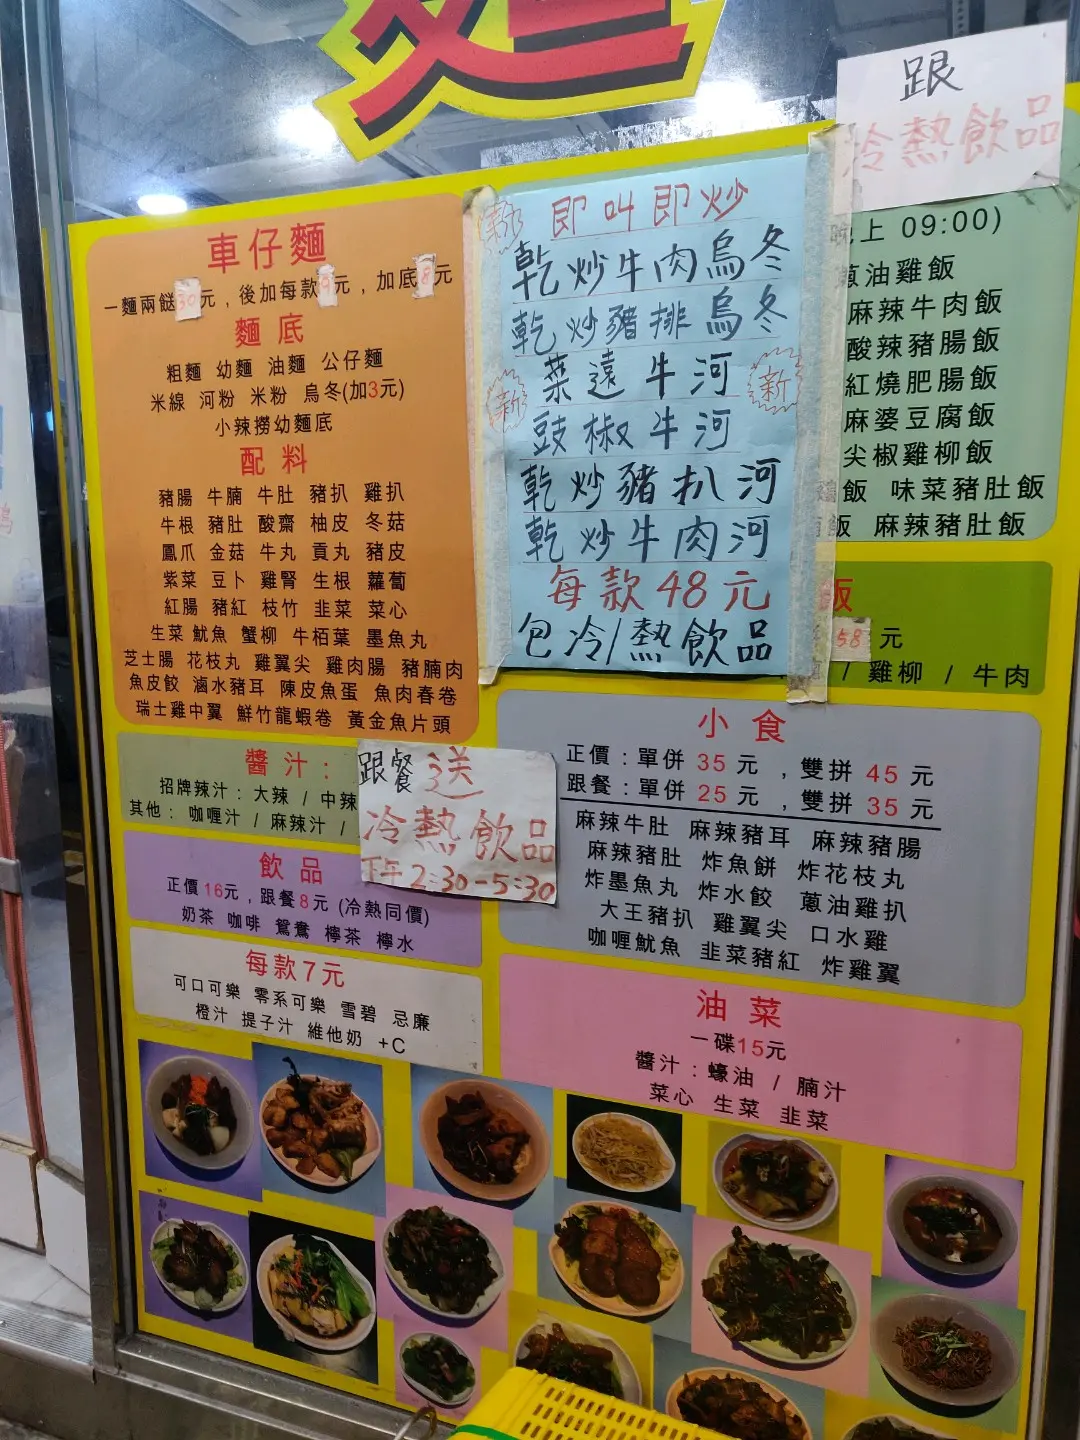 麵
跟
冷熱飲品
車仔麵
一麵兩餸30元，後加每款9元，加底8元
麵底
粗麵 幼麵 油麵 公仔麵
米線 河粉 米粉 烏冬(加3元)
小辣撈幼麵底
配料
豬腸 牛腩 牛肚 豬扒 雞扒
牛根 豬肚 酸齋 柚皮 冬菇
鳳爪 金菇 牛丸 貢丸 豬皮
紫菜 豆卜 雞腎 生根 蘿蔔
紅腸 豬紅 枝竹 韭菜 菜心
生菜 魷魚 蟹柳 牛栢葉 墨魚丸
芝士腸 花枝丸 雞翼尖 雞肉腸 豬腩肉
魚皮餃 滷水豬耳 陳皮魚蛋 魚肉春卷
瑞士雞中翼 鮮竹龍蝦卷 黃金魚片頭
醬汁：
招牌辣汁：大辣 / 中辣
其他： 咖喱汁 / 麻辣汁 /
跟餐送
冷熱飲品
下午2:30-5:30
飲品
正價16元，跟餐8元 (冷熱同價)
奶茶 咖啡 鴛鴦 檸茶 檸水
每款7元
可口可樂 零系可樂 雪碧 忌廉
橙汁 提子汁 維他奶 +C
即叫即炒
乾炒牛肉烏冬
乾炒豬排烏冬
菜遠牛河
新
新
豉椒牛河
乾炒豬扒河
乾炒牛肉河
每款48元
包冷/熱飲品
晚上 09:00)
蔥油雞飯
麻辣牛肉飯
酸辣豬腸飯
紅燒肥腸飯
麻婆豆腐飯
尖椒雞柳飯
飯 味菜豬肚飯
飯 麻辣豬肚飯
飯
58元
/ 雞柳 / 牛肉
小食
正價：單併 35 元 ，雙拼 45 元
跟餐：單併 25 元 ，雙拼 35 元
麻辣牛肚 麻辣豬耳 麻辣豬腸
麻辣豬肚 炸魚餅 炸花枝丸
炸墨魚丸 炸水餃 蔥油雞扒
大王豬扒 雞翼尖 口水雞
咖喱魷魚 韭菜豬紅 炸雞翼
油菜
一碟15元
醬汁：蠔油 / 腩汁
菜心 生菜 韭菜